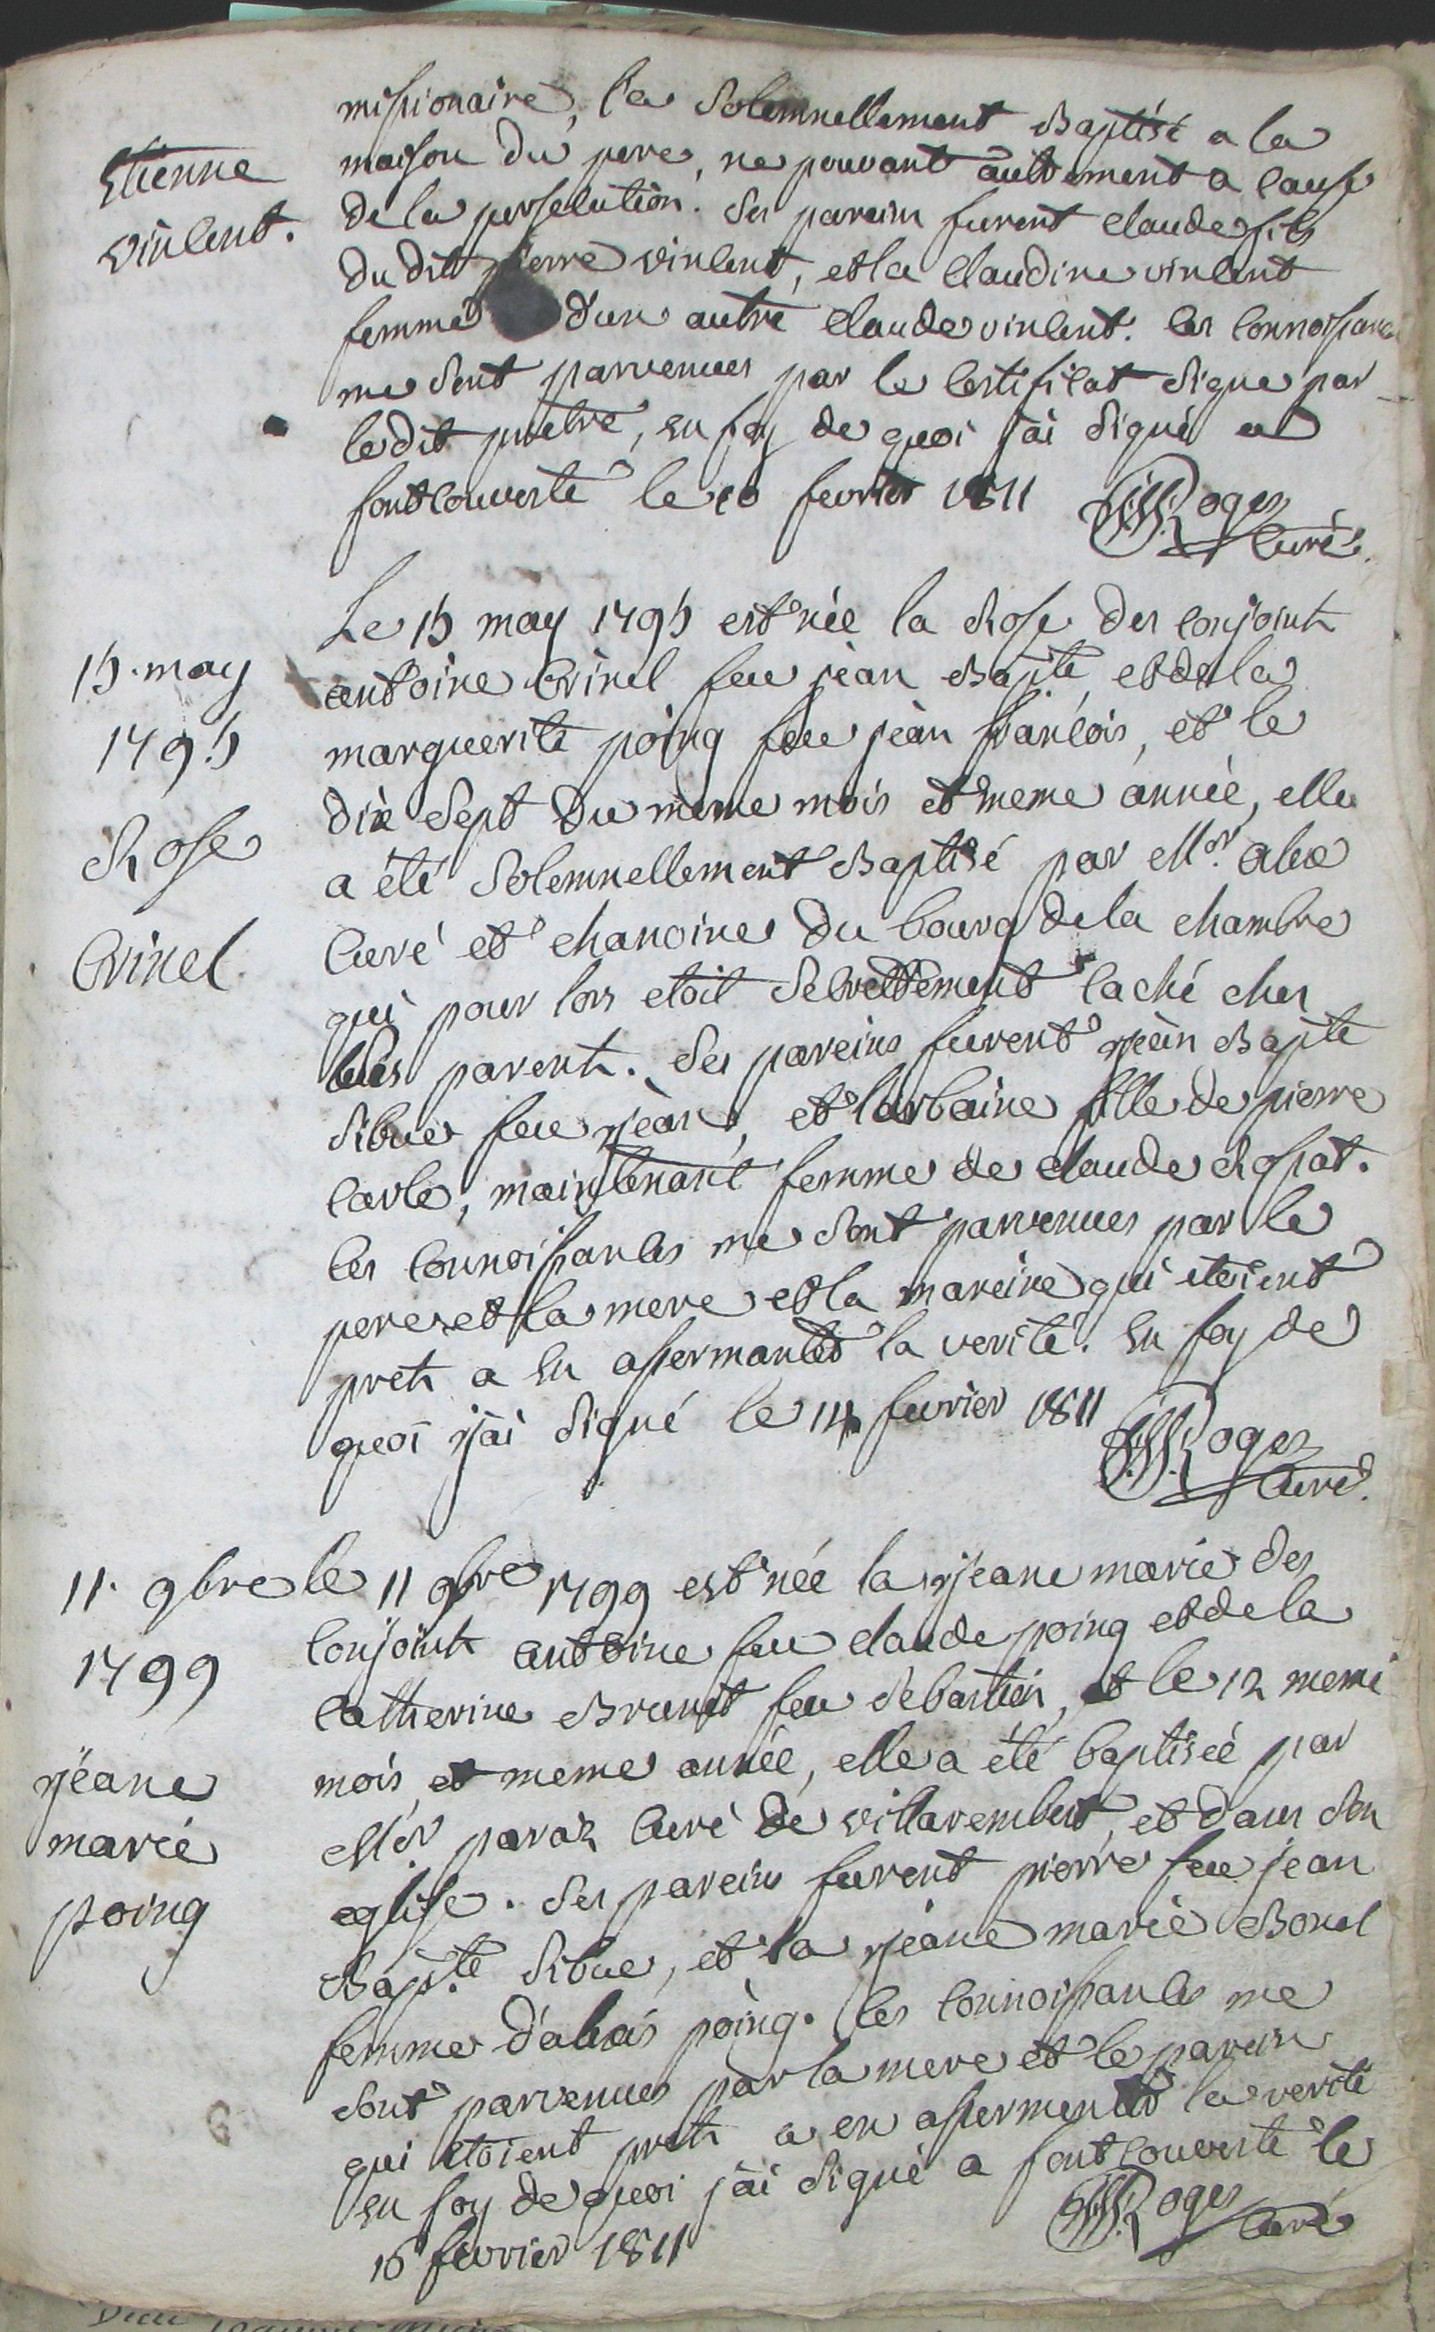 missionaire, l'a solemnellement Baptisé a la
Etienne
vincent.
maison du pere, ne pouvant autrement a cause
de la persecution. ses parain furent claude fils
du dit pierre vincent, et la claudine vincent
femme d'un autre claude vincent. ces connoissances
me sont parvenues par le certificat signe par
ledit pretre, en foy de quoi j'ai signé a
fontcouverte le 10 fevrier 1811 Roger
curé.
15 may
1795
Rose
Crinel
Le 15 may 1795 est née la Rose des conjoints
antoine Crinel feu jean Bapte, et de la
marguerite poing feu jean francois, et le
dix sept du meme mois et meme année, elle
a été solemnellement Baptisé par Mr. alex
curé et chanoine du bourg de la chambre
qui pour lors etoit secrettement caché ches
ses parents. ses pareins furent jean Bapte
sibue feu jean, et barbaine fille de pierre
carle, maintenant femme de claude Rosat.
ces connoissances me sont parvenues par le
pere et la mere et la mareine qui etoient
prets a en assermanter la verité. en foy de
quoi j'ai signé le 14 fevrier 1811 Roger
curé.
11 9bre
1799
jeane
marie
poing
le 11 9bre 1799 est née la jeane marie des
conjoints antoine feu claude poing et de la
catherine Brunet feu sebastien, et le 12 meme
mois et meme année, elle a été baptiseé par
Mr. paraz curé de villarembert, et dans son
eglise. ses pareins furent pierre feu jean
Bapte. sibue, et la jeane marie Borel
femme d'alexis poing. ces connoissances me
sont parvenues par la mere et le parein
qui etoient prets a en assermenter la verité
en foy de quoi j'ai signé a fontcouverte le
16 fevrier 1811 Roger curé